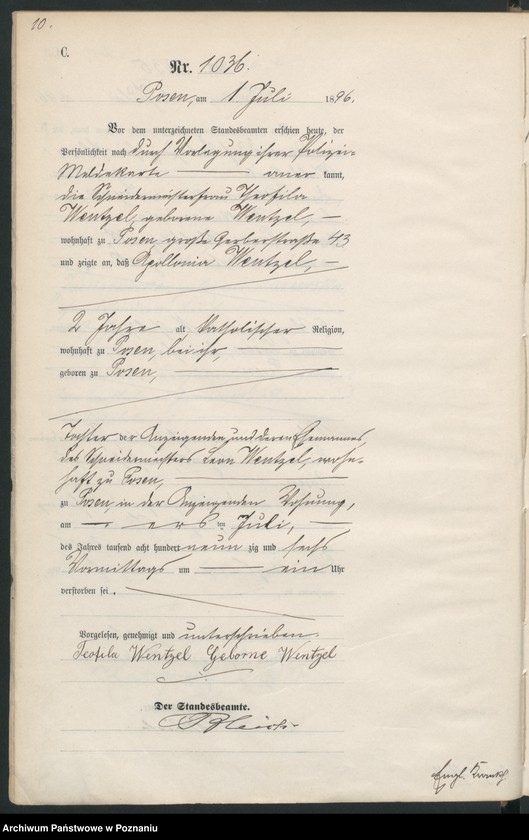 10.
C.
Nr. 1036.
Posen, am 1 Juli 1896.
Vor dem unterzeichneten Standesbeamten erschien heute, der
Persönlichkeit nach durch Vorlegung ihrer Polizei-
Meldekarte — aner kannt,
die Schneidermeisterfrau Theofila
Wentzel, geborene Wentzel, —
wohnhaft zu Posen, große Gerberstraße 43
und zeigte an, daß Apollonia Wentzel, —
2 Jahre alt katholischer Religion,
wohnhaft zu Posen, bei ihr, —
geboren zu Posen, —
Tochter der Anzeigenden und deren Ehemannes,
des Schneidermeisters Leon Wentzel, wohn-
haft zu Posen, —
zu Posen, in der Anzeigenden Wohnung,
am — ers ten Juli, —
des Jahres tausend acht hundert neun zig und sechs
Vormittags um — ein Uhr
verstorben sei.
Vorgelesen, genehmigt und unterschrieben.
Teofila Wentzel Geborne Wentzel
Der Standesbeamte.
Archiwum Państwowe w Poznaniu